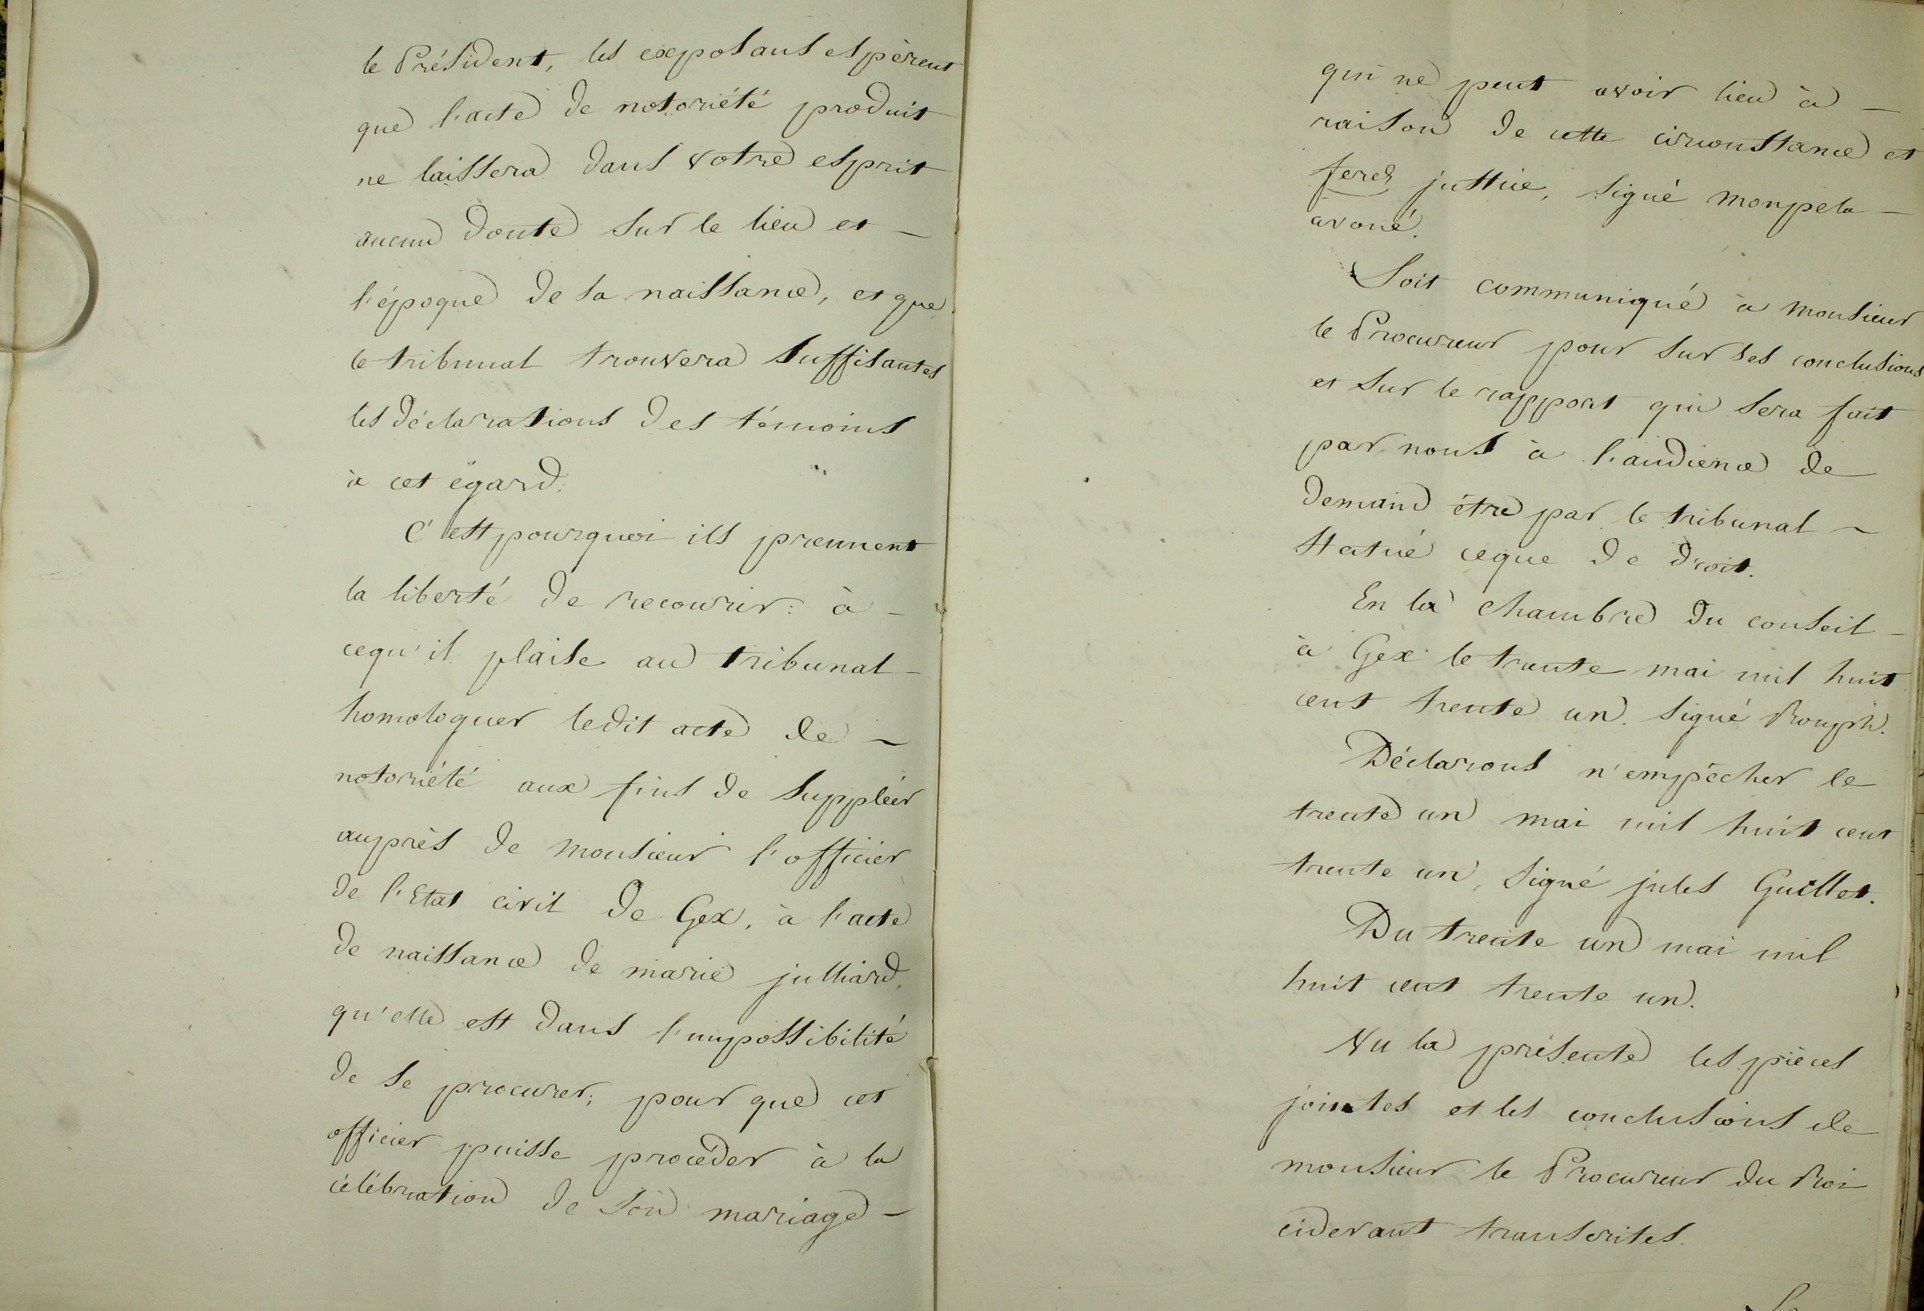 le Président, les exposans espèrent
que l'acte de notoriété produit
ne laissera dans votre esprit
aucun doute sur le lieu et –
l'époque de sa naissance, et que
le tribunal trouvera suffisantes
les déclarations des témoins
à cet égard.
C'est pourquoi ils prennent
la liberté de recourir : à –
cequ'il plaise au tribunal –
homologuer ledit acte de –
notoriété aux fins de suppléer
auprès de monsieur l'officier
de l'Etat civil de Gex, à l'acte
de naissance de marie julliard,
qu'elle est dans l'impossibilité
de se procurer, pour que cet
officier puisse procéder à la
célébration de son mariage –
qui ne peut avoir lieu à –
raison de cette circonstance et
ferez justice, signé monpela –
avoué.
Soit communiqué à monsieur
le Procureur pour sur ses conclusions
et sur le rapport qui sera fait
par nous à l'audience de
demain être par le tribunal –
statué ceque de droit.
En la chambre du conseil –
à Gex le trente mai mil huit
cent trente un. signé Rouph.
Déclarons n'empêcher le
trente un mai mil huit cent
trente un, signé jules Guillet.
Du trente un mai mil
huit cent trente un.
Vu la présente les pièces
jointes et les conclusions de
monsieur le Procureur du Roi
cidevant transcrites.